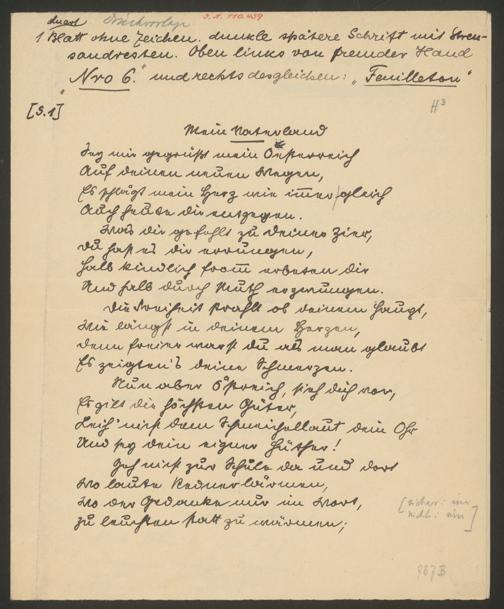 zuerst Druckvorlage I.N. 110.459
1 Blatt ohne Zeichen. dunkle spätere Schrift mit Streu-
sandresten. Oben links von fremder Hand
"Nro 6." und rechts desgleichen: "Feuilleton"
H³
[S.1]
Mein Vaterland
Sey mir gegrüßt mein Oesterreich
Auf deinen neuen Wegen,
Es schlägt mein Herz wie im̅er gleich
Auch heute dir entgegen.
Was dir gefehlt zu deiner Zier,
Du hast es dir errungen,
Halb kindlich from̅ erbeten dir
Und halb durch Muth erzwungen.
Die Freiheit strahlt ob deinem Haupt,
Wie längst in deinem Herzen,
Denn freier warst du als man glaubt
Es zeigten's deine Schmerzen.
Nun aber Östreich, sieh dich vor,
Es gilt die höchsten Güter,
Leih' nicht dem Schmeichellaut dein Ohr
Und sey dein eigner Hüther!
Geh nicht zur Schule da und dort
Wo laute Redner lärmen,
Wo der Gedanke nur im Wort,
Zu leuchten statt zu wärmen;
[sicher: im
nicht: ein]